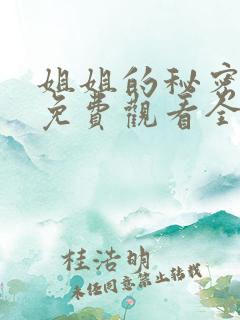 姐姐的秘密
免費觀看全
桂浩明
未任同意禁止转载